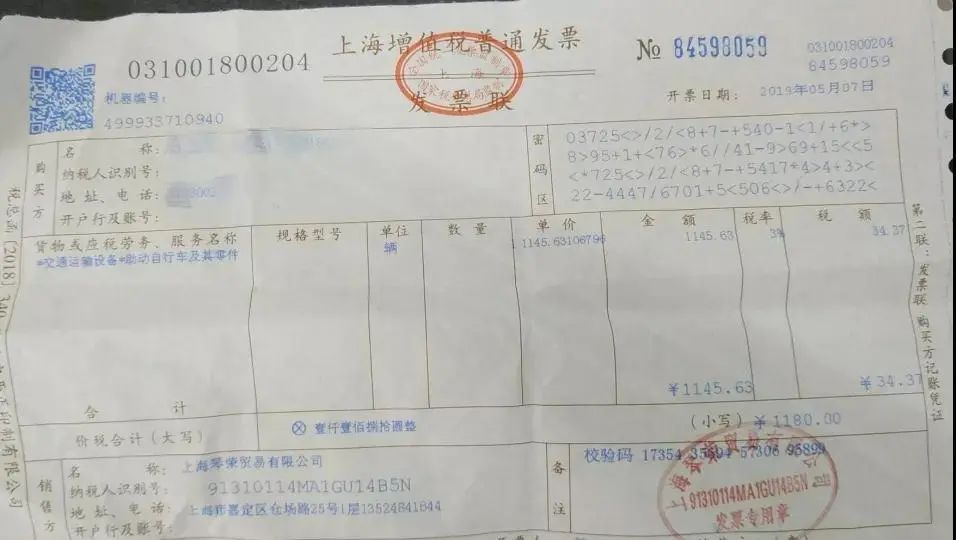 上海增值税普通发票
发票联
031001800204
№ 84598059
031001800204
84598059
机器编号:
499933710940
开票日期: 2019年05月07日
购买方
名 称:
纳税人识别号:
地 址、电 话:
开户行及账号:
密码区
03725<>/2/<8+7-+540-1<1/+6*>
8>95+1+<76>*6//41-9>69+15<<5
<*725<>/2/<8+7-+5417*4>4+3><
22-4447/6701+5<506<>/-+6322<
货物或应税劳务、服务名称 规格型号 单位 数量 单价 金额 税率 税额
*交通运输设备*助动自行车及其零件 辆 1145.63106796 1145.63 3% 34.37
合 计 ¥1145.63 ¥34.37
价税合计(大写) ⊗ 壹仟壹佰捌拾圆整 (小写) ¥1180.00
销售方
名 称: 上海琴荣贸易有限公司
纳税人识别号: 91310114MA1GU14B5N
地 址、电 话: 上海市嘉定区仓场路25号1层13524841844
开户行及账号:
备注
校验码 17354 35894 57306 95899
91310114MA1GU14B5N
发票专用章
第二联:发票联 购买方记账凭证
税总函〔2018〕
印制有限公司